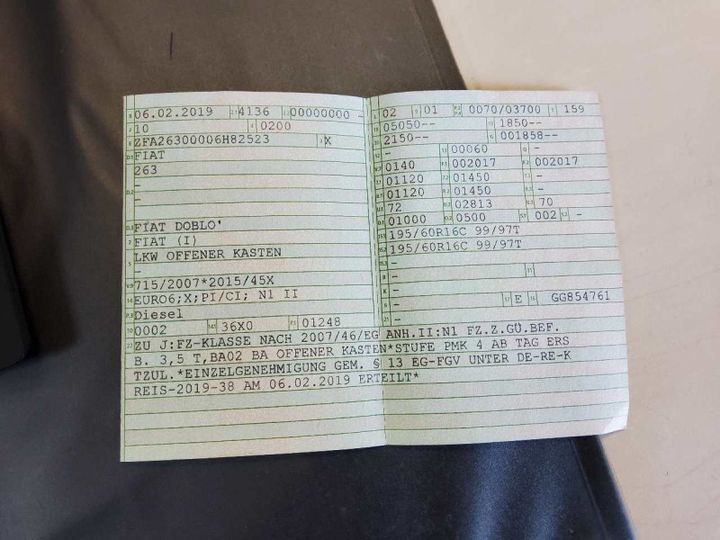 06.02.2019 4136 00000000 -
10 0200
ZFA26300006H82523 X
FIAT
263
-
-
FIAT DOBLO'
FIAT (I)
LKW OFFENER KASTEN
-
715/2007*2015/45X
EURO6;X;PI/CI; N1 II
Diesel
0002 36X0 01248
02 01 0070/03700 159
05050-- 1850--
2150-- 001858--
- 00060 -
0140 002017 002017
01120 01450 -
01120 01450 -
72 02813 70
01000 0500 002 -
195/60R16C 99/97T
195/60R16C 99/97T
-
-
- E GG854761
-
ZU J:FZ-KLASSE NACH 2007/46/EG ANH.II:N1 FZ.Z.GÜ.BEF.
B. 3,5 T,BA02 BA OFFENER KASTEN*STUFE PMK 4 AB TAG ERS
TZUL.*EINZELGENEHMIGUNG GEM. § 13 EG-FGV UNTER DE-RE-K
REIS-2019-38 AM 06.02.2019 ERTEILT*